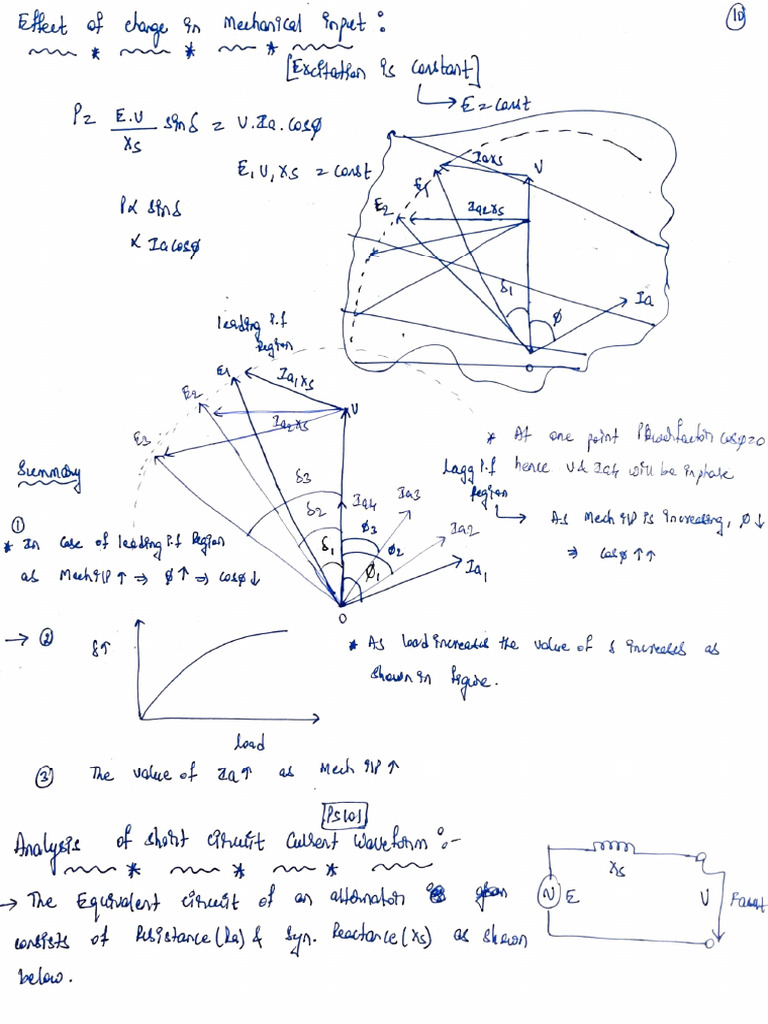 10
Effect of change in Mechanical input :
[Excitation is constant]
→ E = const
P = E.V / Xs sinδ = V.Ia.cosφ
E, V, Xs = const
P ∝ sinδ
∝ Ia cosφ
IaXs
V
E1
E2
Ia2Xs
δ1
φ
Ia
0
leading P.f
Region
E1
Ia1Xs
E2
V
Ia2Xs
E3
* At one point Powerfactor cosφ=0
Lagg P.f hence V & Ia4 will be in phase
Region
→ As Mech i/p is increasing, φ↓
⇒ cosφ↑↑
δ3
δ2
δ1
Ia4
Ia3
Ia2
Ia1
φ3
φ2
φ1
0
Summary
①
* In case of leading P.f Region
as Mech i/p ↑ ⇒ φ↑ ⇒ cosφ↓
→ ②
δ↑
load
* As load increases the value of δ increases as
shown in figure.
③ The value of Ia↑ as Mech i/p ↑
PS101
Analysis of short circuit current waveform :-
→ The Equivalent circuit of an alternator
consists of Resistance (Ra) & Syn. Reactance (Xs) as shown
below.
Xs
E
V
Fault